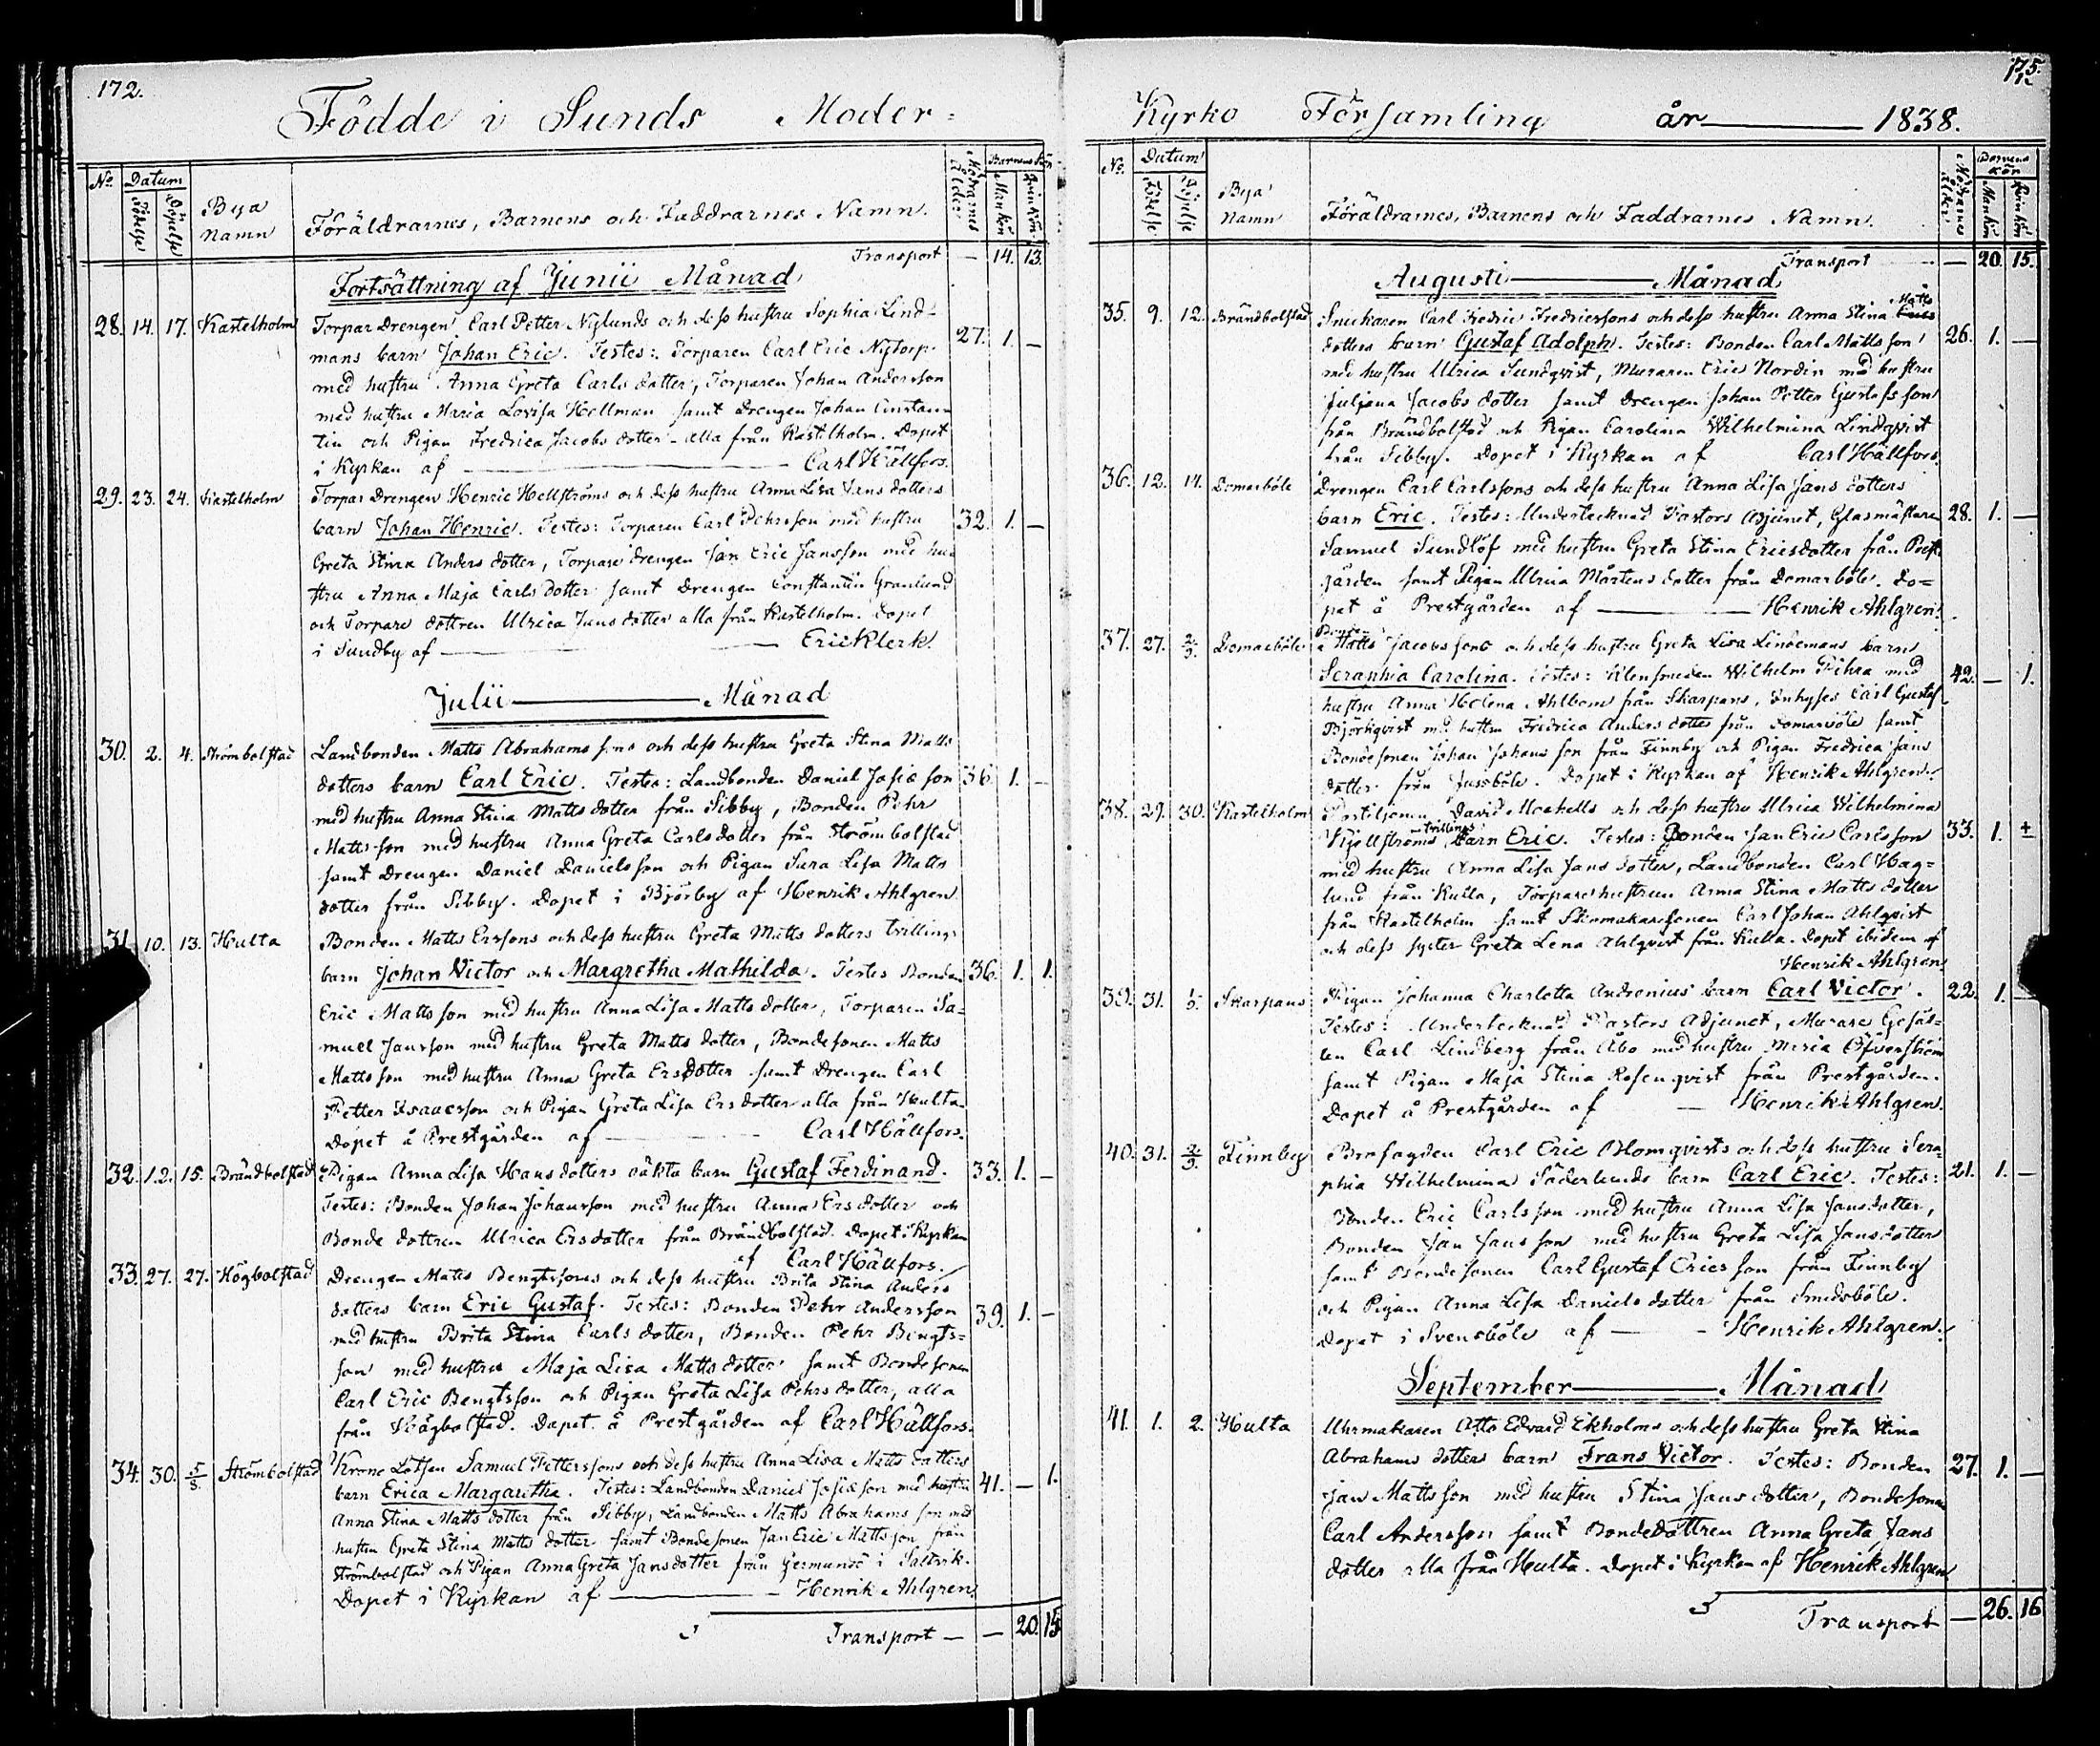 172.
Födde i Sunds Moder=
No.
Datum
Födelse
Döpelse
Bya
Namn
Föräldrarnes, Barnens och Faddrarnes Namn.
Mödrarnes
Ålder.
Barnens Kön
Mankön
Qvinkön.
Transport — 14. 13.
Fortsättning af Junii Månad
28. 14. 17. Kastelholm Torpar Drengen Carl Petter Nylunds och dess hustru Sophia Lind-
mans barn Johan Eric. Testes: Torparen Carl Eric Nytorp 27. 1. —
med hustru Anna Greta Carls dotter, Torparen Johan Andersson
med hustru Maria Lovisa Hellman samt Drengen Johan Constan
tin och Pigan Fredrica Jacobs dotter - alla från Kastelholm. Döpet
i Kyrkan af — Carl Hällfors.
29. 23. 24. Kastelholm Torpar Drengen Henric Hellströms och dess hustru Anna Lisa Jans dotters
barn Johan Henric. Testes: Torparen Carl Pehrsson med hustru 32. 1. —
Greta Stina Anders dotter, Torpare drengen Jan Eric Jansson med hu-
stru Anna Maja Carls dotter samt Drengen Constantin Granlund
och Torpare dottren Ulrica Jans dotter alla från Kastelholm. Döpet
i Sundby af — Eric Klerk.
Julii — Månad
30. 2. 4. Strömbolstad Landbonden Matts Abrahams sons och dess hustru Greta Stina Matts
dotters barn Carl Eric. Testes: Landbonden Daniel Josice son 36. 1. —
med hustru Anna Stina Matts dotter från Sibby, Bonden Pehr
Matts son med hustru Anna Greta Carls dotter från Strömbolstad
samt Drengen Daniel Danielsson och Pigan Sara Lisa Matts
dotter från Sibby. Döpet i Björby af Henrik Ahlgren
31. 10. 13. Hulta Bonden Matts Erssons och dess hustru Greta Matts dotters trillings
barn Johan Victor och Margretha Mathilda. Testes Bonden 36. 1. 1.
Eric Matts son med hustru Anna Lisa Matts dotter, Torparen Sa-
muel Jansson med hustru Greta Matts dotter, Bondesonen Matts
Matts son med hustru Anna Greta Ersdotter samt Drengen Carl
Petter Isaacsson och Pigan Greta Lisa Ers dotter alla från Hulta.
Döpet å Prestgården af — Carl Hällfors.
32. 12. 15. Brändbolstad Pigan Anna Lisa Hans dotters oäkta barn Gustaf Ferdinand. 33. 1. —
Testes: Bonden Johan Johansson med hustru Anna Ers dotter och
Bonde dottren Ulrica Ersdotter från Brändbolstad. Döpet i Kyrkan
af Carl Hällfors.
33. 27. 27. Högbolstad Drengen Matts Bengtssons och dess hustru Brita Stina Anders
dotters barn Eric Gustaf. Testes: Bonden Pehr Andersson 39. 1. —
med hustru Brita Stina Carls dotter, Bonden Pehr Bengts=
son med hustru Maja Lisa Matts dotter samt Bondesonen
Carl Eric Bengtsson och Pigan Greta Lisa Pehrs dotter, alla
från Högbolstad. Döpet å Prestgården af Carl Hällfors.
34. 30. 5/8. Strömbolstad Krono Lotsen Samuel Petterssons och dess hustru Anna Lisa Matts dotters
barn Erica Margaretha. Testes: Landbonden Daniel Josice son med hustru 41. — 1.
Anna Stina Matts dotter från Sibby, Landbonden Matts Abrahams son med
hustru Greta Stina Matts dotter samt Bondesonen Jan Eric Matts son från
Strömbolstad och Pigan Anna Greta Jansdotter från Germundö i Saltvik.
Döpet i Kyrkan af — Henrik Ahlgren.
Transport — — 20. 15
175.
Kyrko Församling år — 1838.
No.
Datum
Födelse
Döpelse
Bya
Namn
Föräldrarnes, Barnens och Faddrarnes Namn.
Mödrarnes
ålder.
Barnens
kön
Mankön
Qvinkön
Transport — 20. 15.
Augusti — Månad
35. 9. 12. Brändbolstad Snickaren Carl Fredric Fredricssons och dess hustru Anna Stina Matts
dotters barn Gustaf Adolph. Testes: Bonden Carl Matts son 26. 1. —
med hustru Ulrica Sundqvist, Muraren Eric Nordin med hustru
Juljana Jacobs dotter samt Drengen Johan Petter Gustafs son
från Brändbolstad och Pigan Carolina Wilhelmina Lindqvist
från Sibby. Döpet i Kyrkan af Carl Hällfors.
36. 12. 14. Domarböle Drengen Carl Carlssons och dess hustru Anna Lisa Jans dotters
barn Eric. Testes: Undertecknad Pastors Adjunct, Glasmästaren 28. 1. —
Samuel Sundlöf med hustru Greta Stina Ericsdotter från Prest
gården samt Pigan Ulrica Mårtens dotter från Domarböle. Dö=
pet å Prestgården af — Henrik Ahlgren.
37. 27. 2/9. Domarböle Matts Jacobssons och dess hustru Greta Lisa Lindemans barn
Seraphia Carolina. Testes: Klensmeden Wilhelm Pihra med 42. — 1.
hustru Anna Helena Ahlbom från Skarpans, Inhyses Carl Gustaf
Björkqvist med hustru Fredrica Anders dotter från Domarböle samt
Bondesonen Johan Johans son från Finnby och Pigan Fredrica Jans
dotter från Jussböle. Döpet i Kyrkan af Henrik Ahlgren.
38. 29. 30. Kastelholm Postiljonen David Mochells och dess hustru Ulrica Wilhelmina
Kjellströms trillings barn Eric. Testes: Bonden Jan Eric Carlsson 33. 1. +
med hustru Anna Lisa Jans dotter, Landbonden Carl Hag=
lund från Kulla, Torpare hustrun Anna Stina Matts dotter
från Kastelholm samt Skomakaresonen Carl Johan Ahlqvist
och dess syster Greta Lena Ahlqvist från Kulla. Döpt ibidem af
Henrik Ahlgren.
39. 31. 1/9. Skarpans Pigan Johanna Charlotta Andronius barn Carl Victor. 22. 1. —
Testes: Undertecknad Pastors Adjunct, Murare Gesäl=
len Carl Lindberg från Åbo med hustru Maria Öfverström
samt Pigan Maja Stina Rosenqvist från Prestgården.
Döpet å Prestgården af — Henrik Ahlgren.
40. 31. 2/9. Finnby Brofogden Carl Eric Blomqvists och dess hustru Sera
phia Wilhelmina Söderlunds barn Carl Eric. Testes: 21. 1. —
Bonden Eric Carlsson med hustru Anna Lisa Jansdotter,
Bonden Jan Jans son med hustru Greta Lisa Jansdotter
samt Bondesonen Carl Gustaf Erics son från Finnby
och Pigan Anna Lisa Daniels dotter från Smedsböle.
Döpet i Svensböle af — Henrik Ahlgren.
September — Månad
41. 1. 2. Hulta Uhrmakaren Otto Edvard Ekholms och dess hustru Greta Stina
Abrahams dotters barn Frans Victor. Testes: Bonden 27. 1. —
Jan Matts son med hustru Stina Jans dotter, Bondesonen
Carl Andersson samt Bondedottren Anna Greta Jans
dotter alla från Hulta. Döpet i Kyrkan af Henrik Ahlgren
Transport — 26. 16